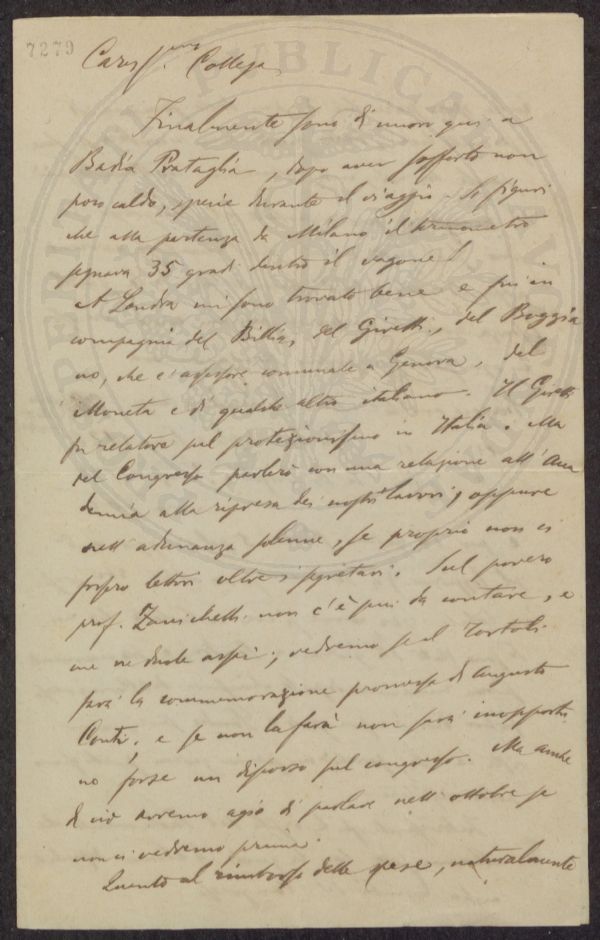 7279
Cariss.mo Collega
Finalmente sono di nuovo qui a
Badia Prataglia, dopo aver sofferto non
poco caldo, specie durante il viaggio. Si figuri
che alla partenza da Milano il termometro
segnava 35 gradi dentro il vagone!
A Londra mi sono trovato bene e fui in
compagnia del Billia, del Giretti, del Boggia
no, che è assessore comunale a Genova, del
Moneta e di qualche altro italiano. Il Giretti
fu relatore sul protezionismo in Italia. Ma
del Congresso parlerò con una relazione all'Acca
demia alla ripresa dei nostri lavori, oppure
nell'adunanza solenne, se proprio non ci
fossero lettori oltre i segretari. Sul povero
prof. Zanichelli non c'è più da contare, e
me ne duole assai; vedremo se il Tortoli
farà la commemorazione promessa di Augusto
Conti; e se non la farà non sarà inopportu
no forse un discorso sul congresso. Ma anche
di ciò avremo agio di parlare nell'ottobre se
non ci vedremo prima.
Quanto al rimborso delle spese, naturalmente